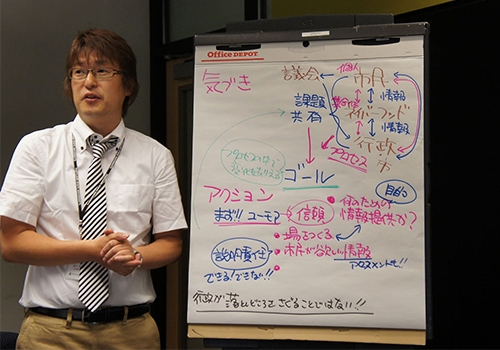 Office DEPOT
気づき
議会
個人
市民
課題
共有
情報
情報
行政
市
プロセス
ゴール
目的
アクション
まず!! ユーモア
信頼
何のための
情報提供か?
場をつくる
説明責任
市民が欲しい情報
アセスメントも!!
できる!できない!!
行政が落としどころをさぐることではない!!